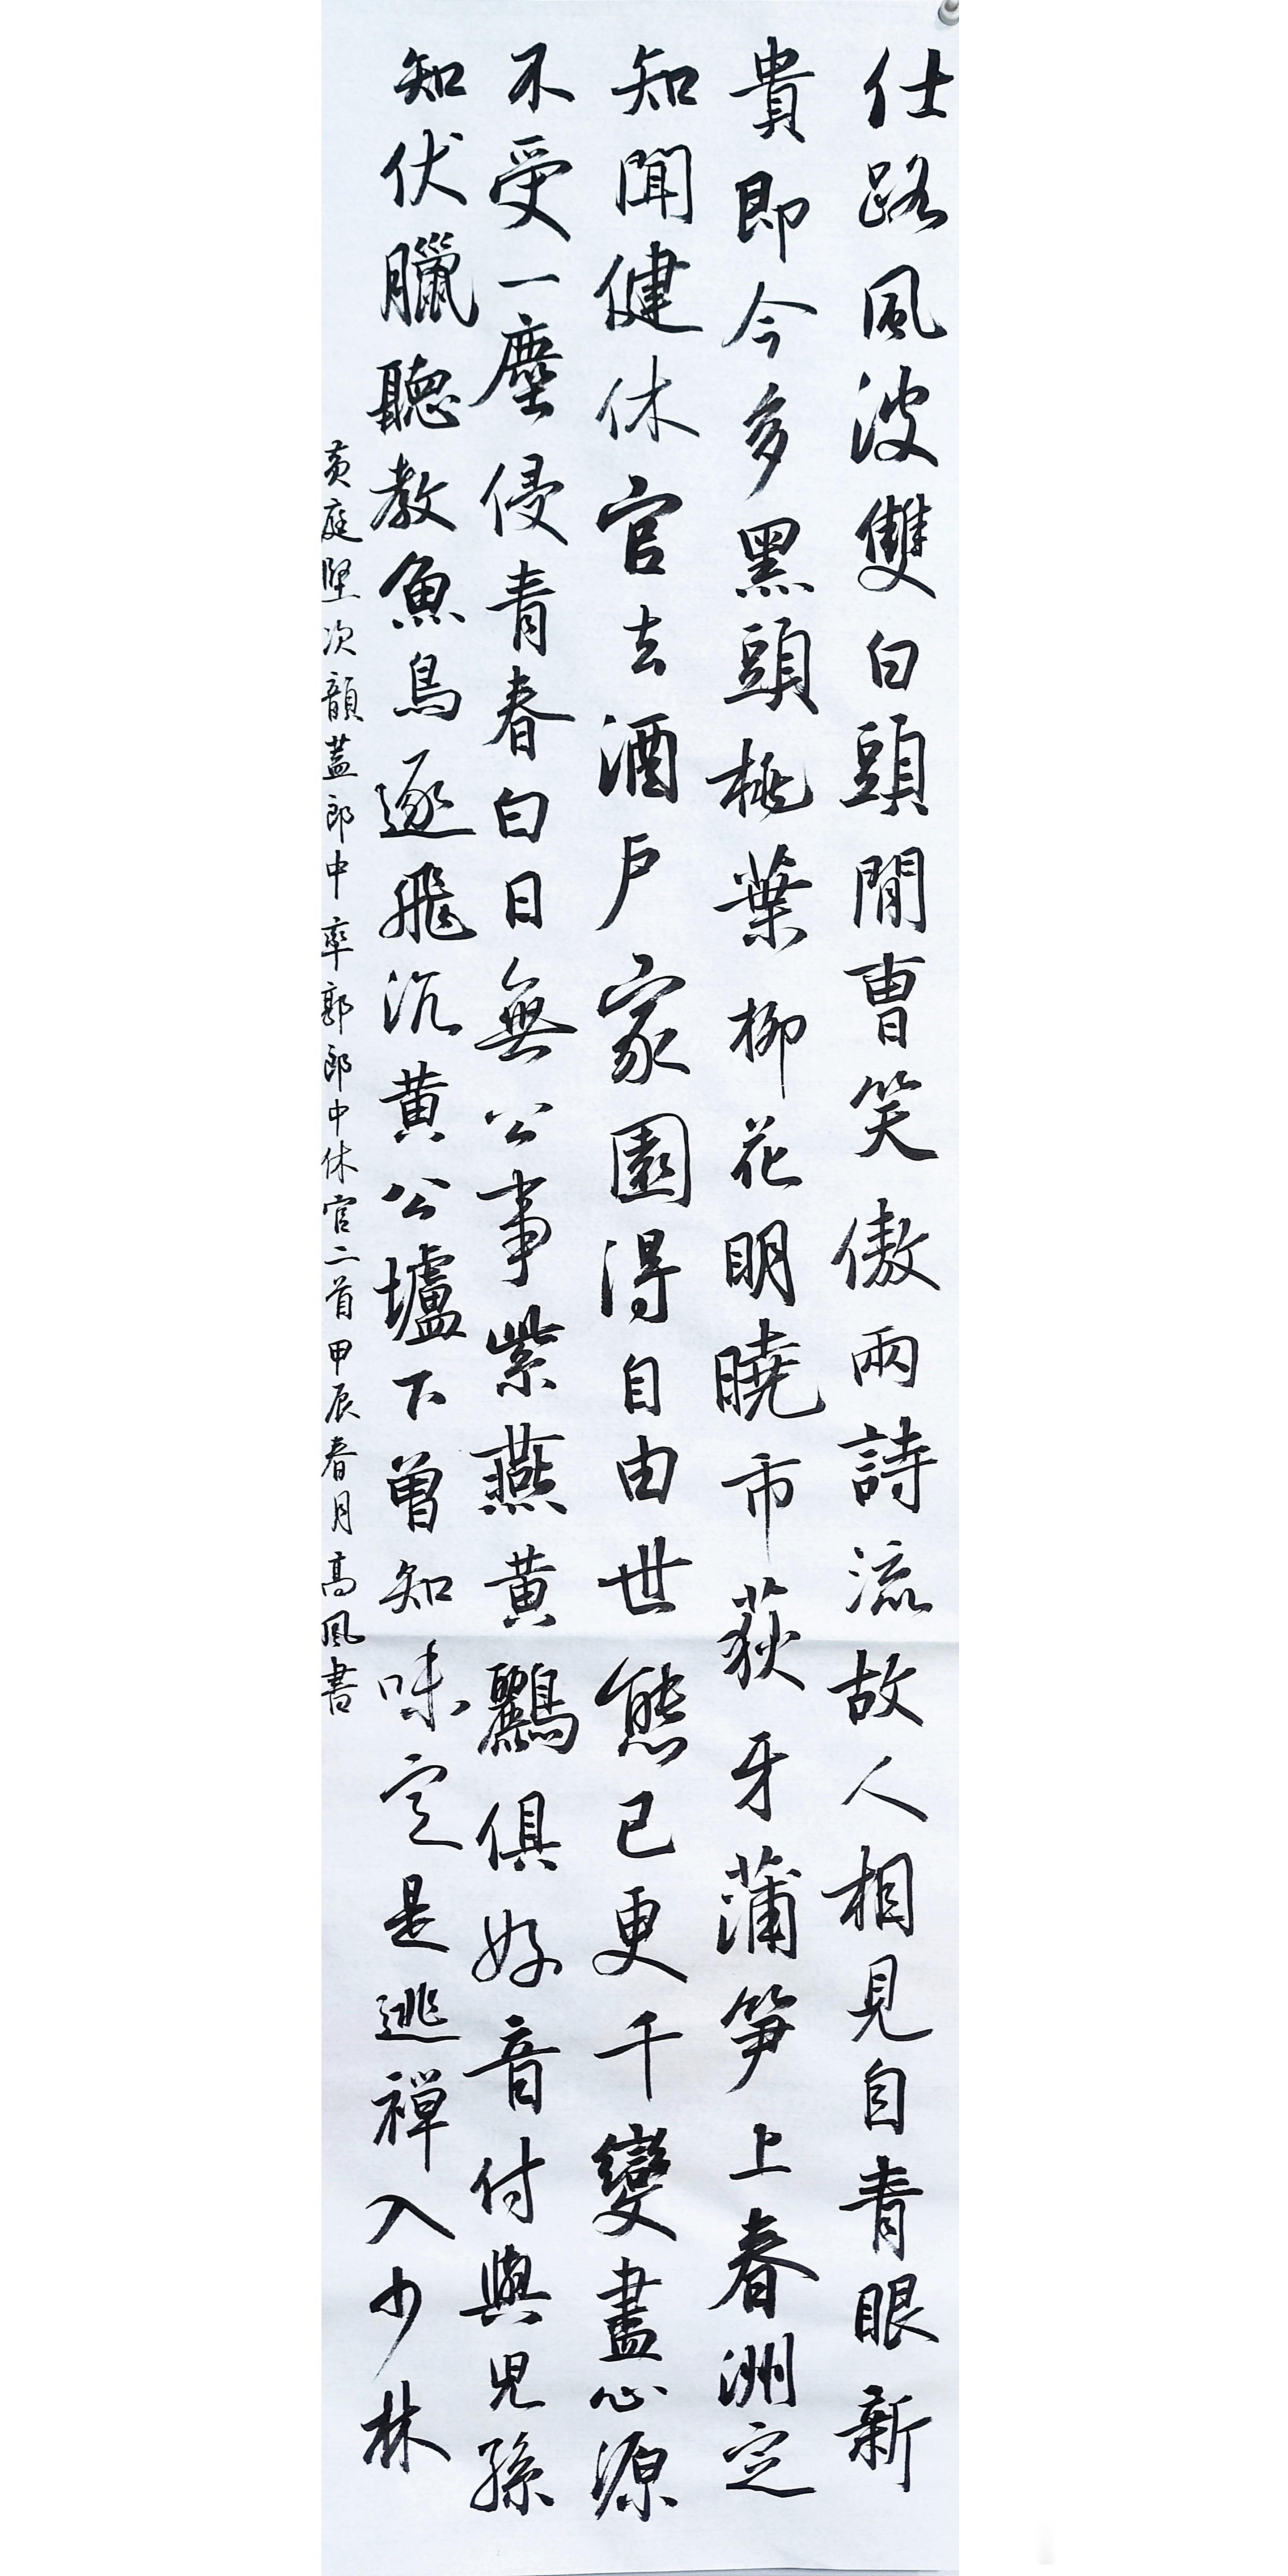 仕路風波雙白頭閒曹笑傲兩詩流故人相見自青眼新
貴即今多黑頭桃葉柳花明曉市荻牙蒲笋上春洲定
知聞健休官去酒戶家園得自由世態已更千變盡心源
不受一塵侵青春白日無公事紫燕黄鸝俱好音付與兒孫
知伏臘聽教魚鳥逐飛沉黄公壚下曾知味定是逃禪入少林
黄庭堅次韻蓋郎中率郭郎中休官二首甲辰春月高風書